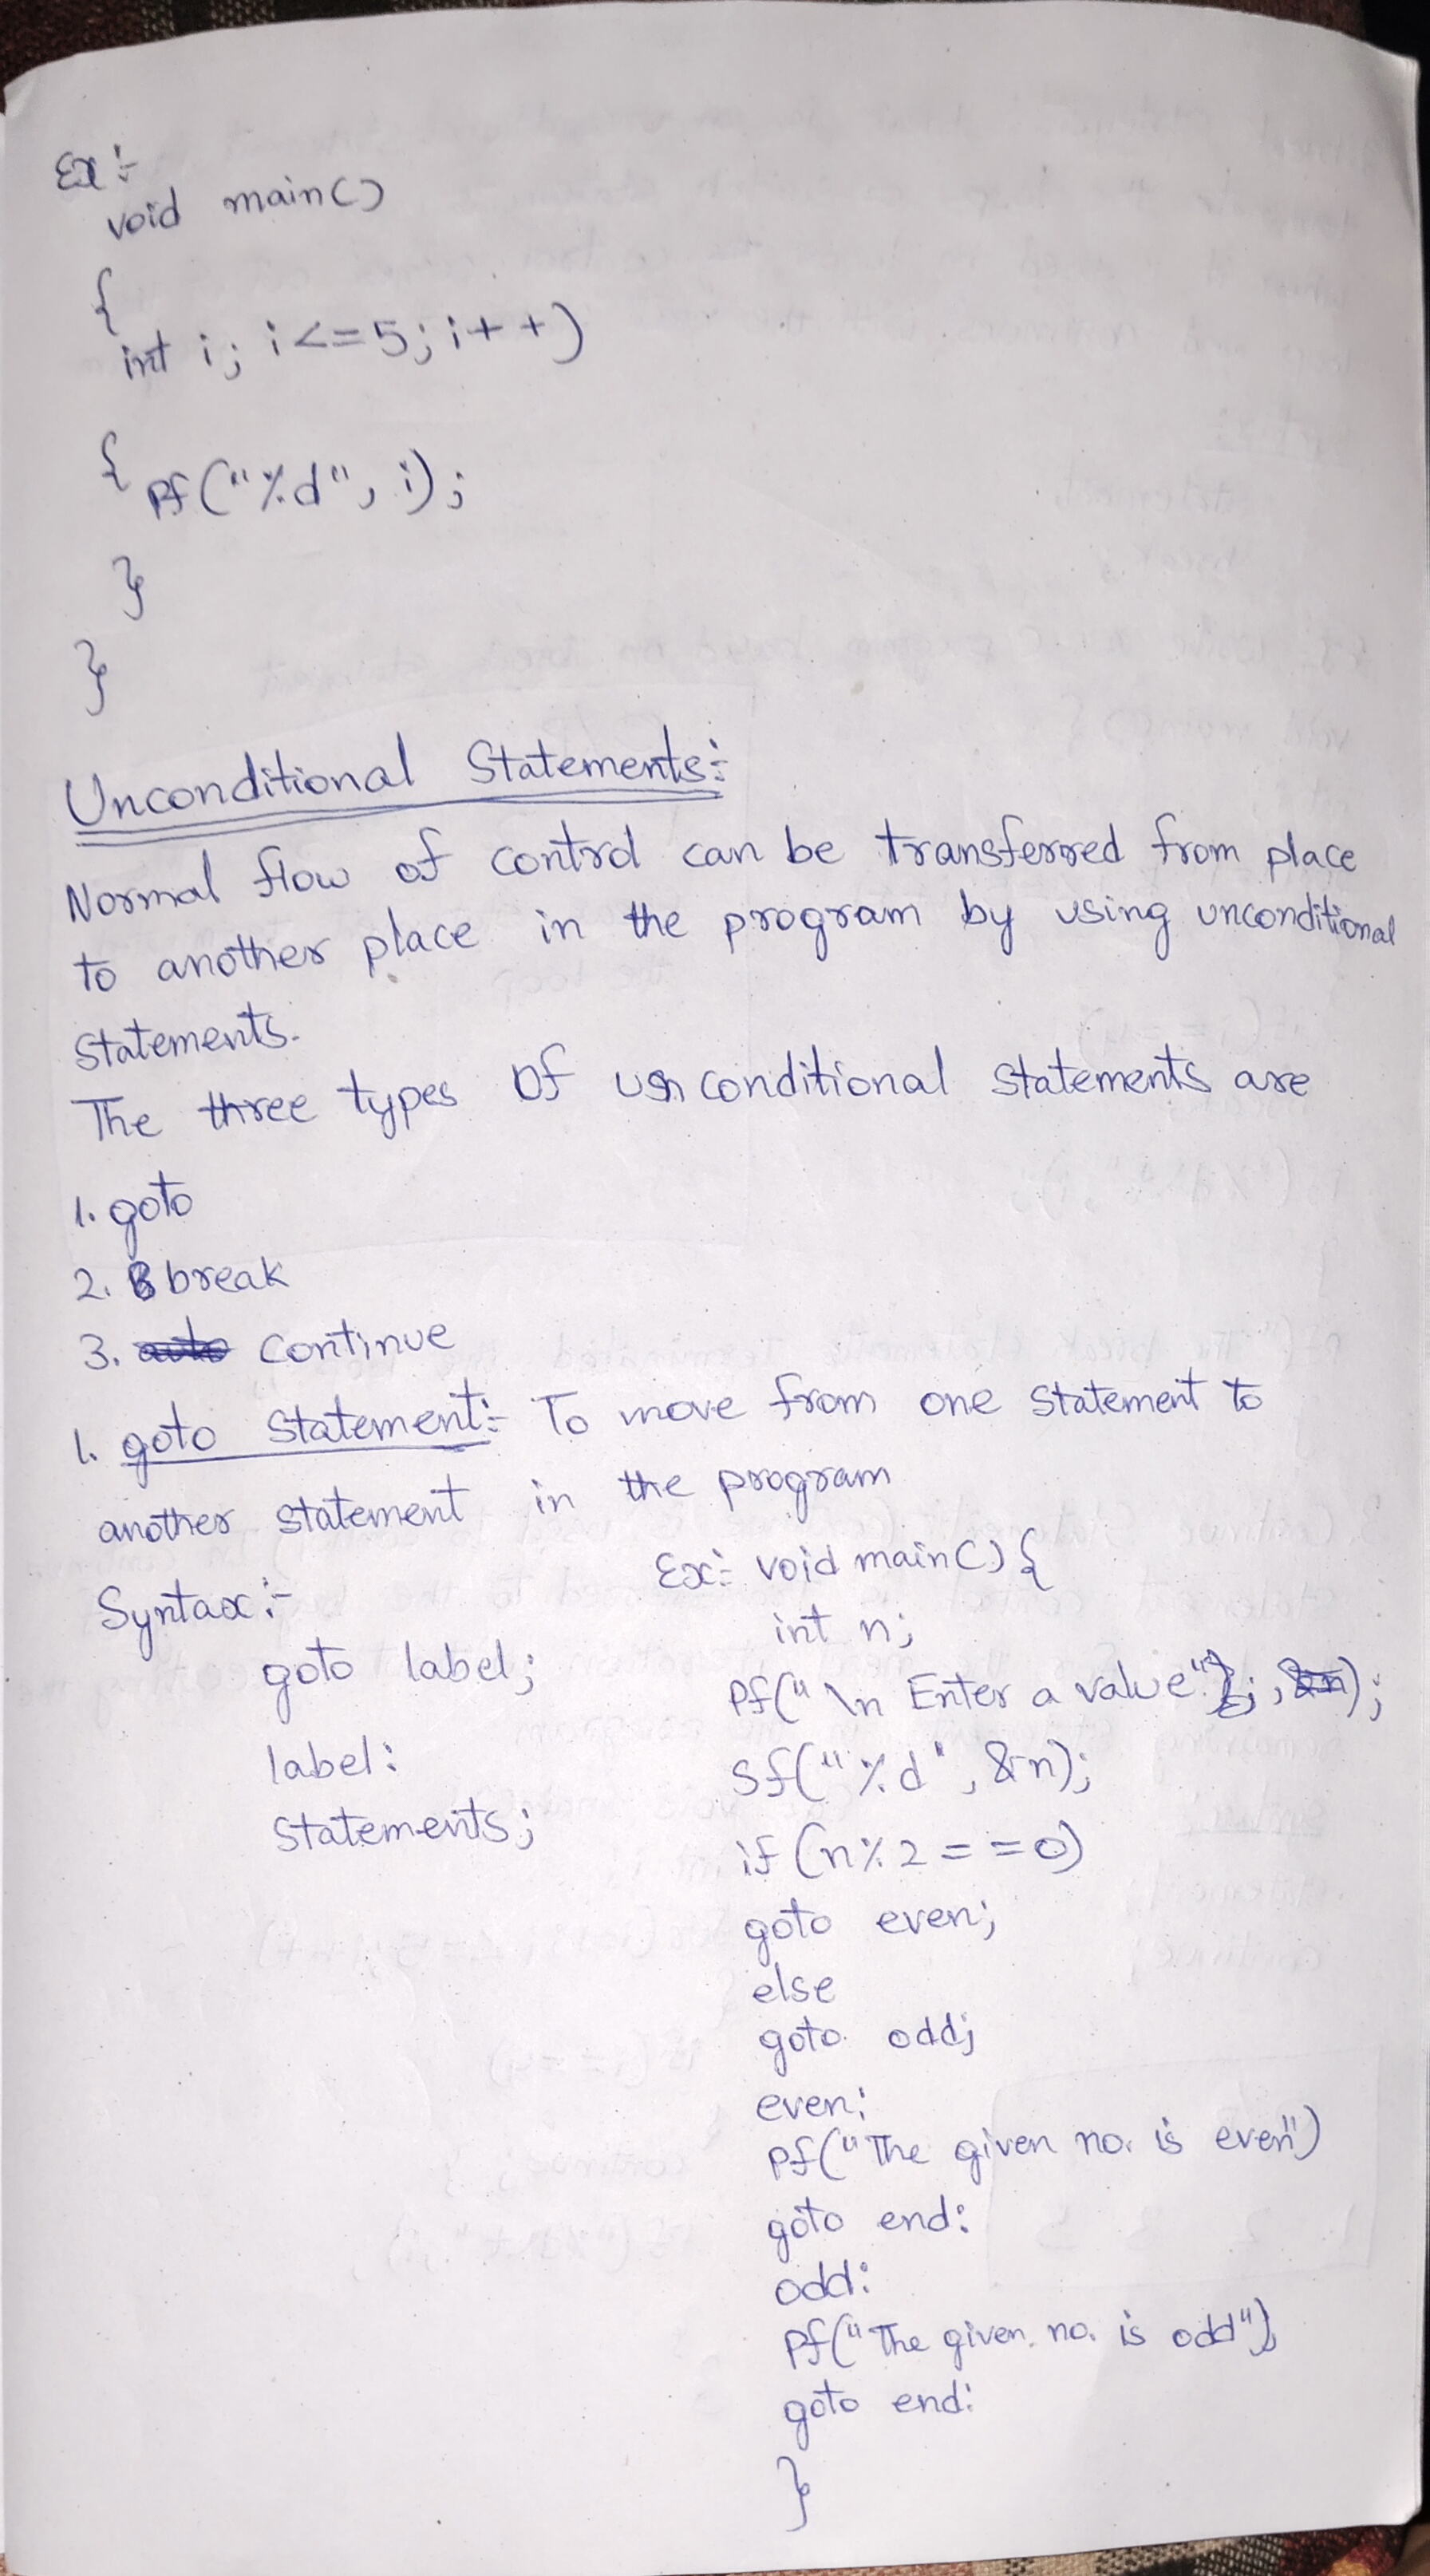 Ex:-
void main()
{
int i; i<=5; i++)
{
Pf("%d", i);
}
}
Unconditional Statements:-
Normal flow of control can be transferred from place
to another place in the program by using unconditional
Statements.
The three types of unconditional statements are
1. goto
2. break
3. Continue
1. goto Statement:- To move from one Statement to
another statement in the program
Syntax:-
goto label;
label:
Statements;
Ex:- void main() {
int n;
Pf("\n Enter a value");
Sf("%d", &n);
if (n%2 = =0)
goto even;
else
goto odd;
even:
Pf("The given no. is even")
goto end:
odd:
Pf("The given no. is odd");
goto end:
}